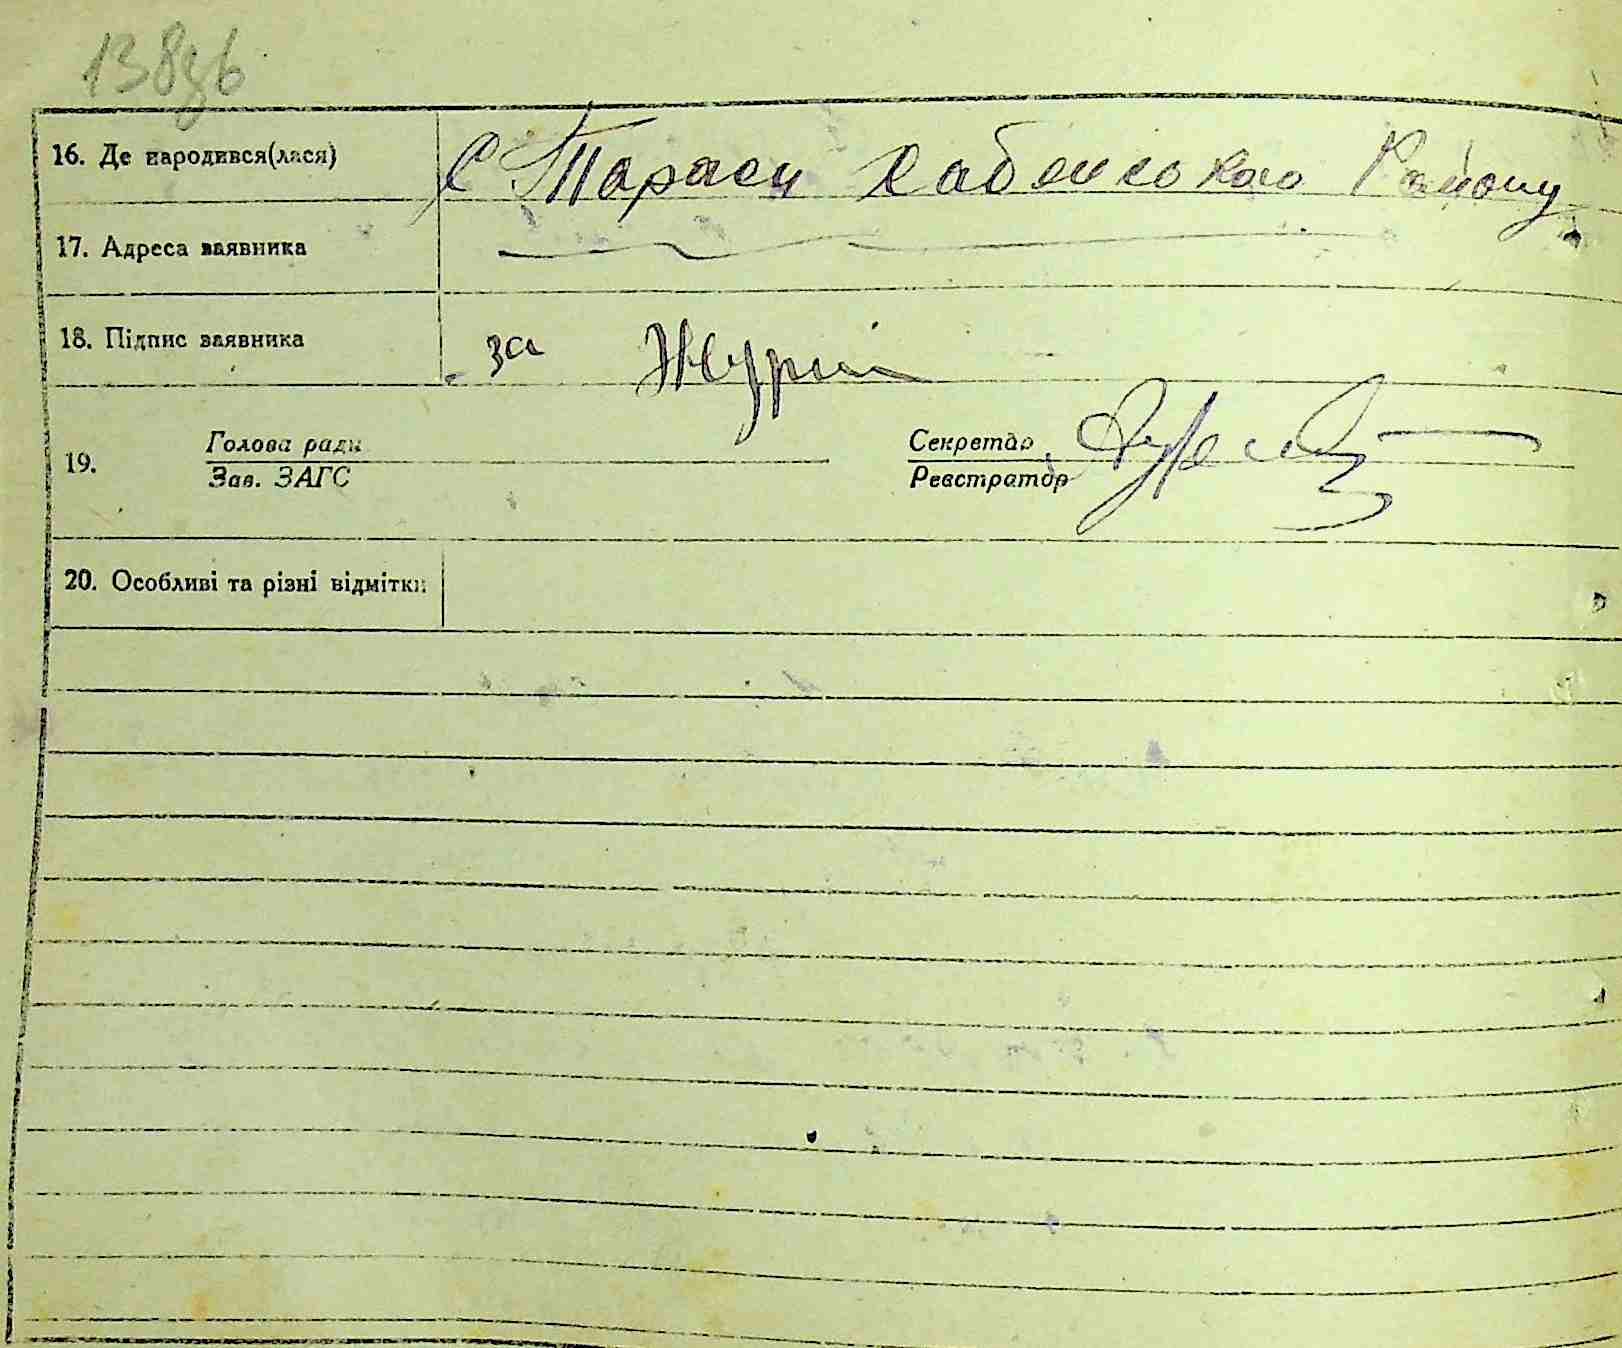 138зв
16. Де народився(лася) с Тараси Хабенського Району
17. Адреса заявника
18. Підпис заявника за Журии
19. Голова ради Секретар
Зав. ЗАГС Реєстратор
20. Особливі та різні відмітки